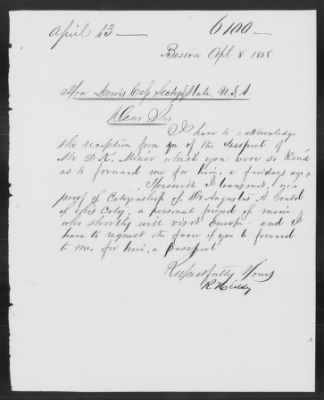 April 13 —
6100 —
Boston Apl 8 1858
Hon Lewis Cass Secty State U.S.A
Dear Sir
I have to acknowledge
the reception from you of the Passport of
Mr D. K. Minor which you were so kind
as to forward me for him, a few days ago,
Herewith I transmit, you
proof of Citizenship of Mr Augustus A. Gould
of this City, a personal friend of mine
who shortly will visit Europe and I
have to request the favor of you to forward
to me, for him, a passport
Respectfully Yours